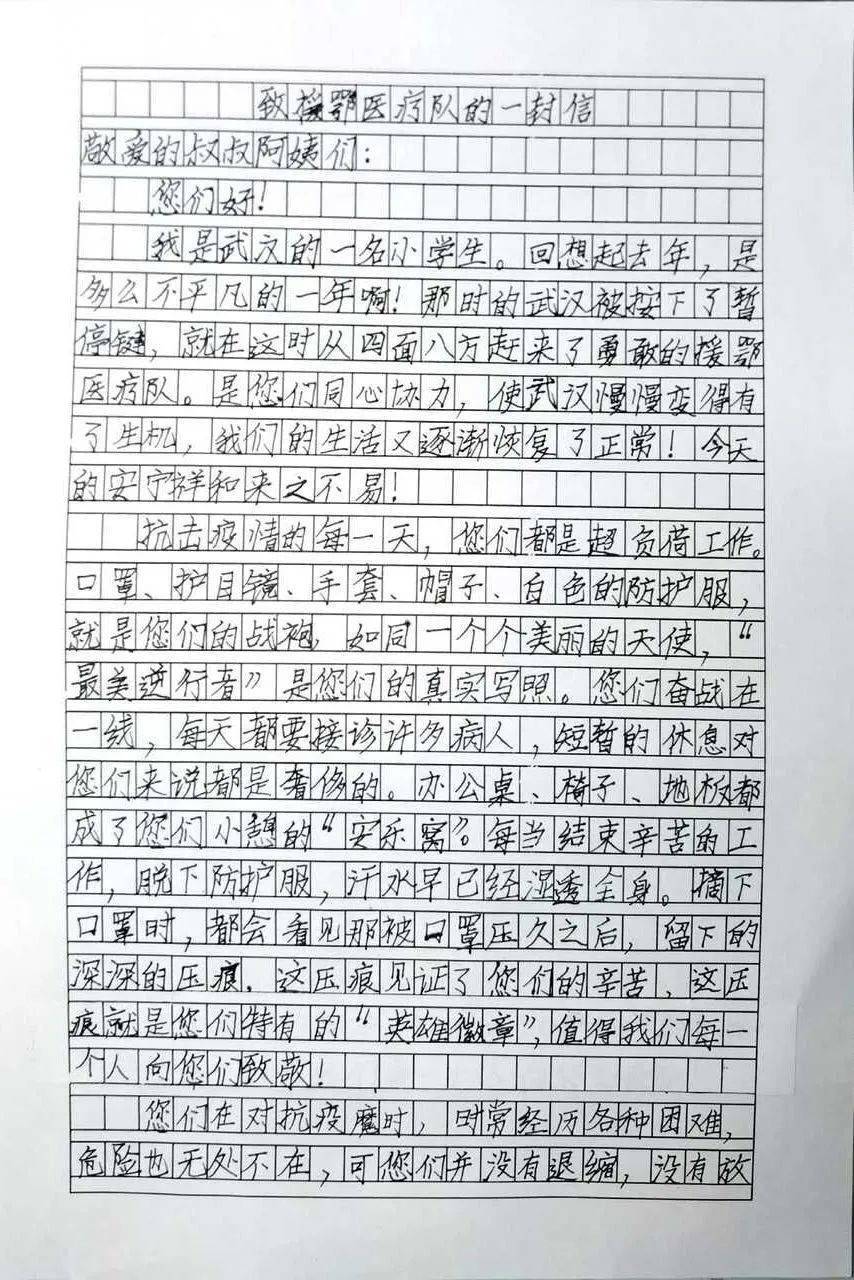 致援鄂医疗队的一封信
敬爱的叔叔阿姨们：
您们好！
我是武汉的一名小学生。回想起去年，是
多么不平凡的一年啊！那时的武汉被按下了暂
停键，就在这时从四面八方赶来了勇敢的援鄂
医疗队。是您们同心协力，使武汉慢慢变得有
了生机，我们的生活又逐渐恢复了正常！今天
的安宁祥和来之不易！
抗击疫情的每一天，您们都是超负荷工作。
口罩、护目镜、手套、帽子、白色的防护服，
就是您们的战袍，如同一个个美丽的天使，“
最美逆行者”是您们的真实写照。您们奋战在
一线，每天都要接诊许多病人，短暂的休息对
您们来说都是奢侈的。办公桌、椅子、地板都
成了您们小憩的“安乐窝”。每当结束辛苦的工
作，脱下防护服，汗水早已经湿透全身。摘下
口罩时，都会看见那被口罩压久之后，留下的
深深的压痕．这压痕见证了您们的辛苦，这压
痕就是您们特有的“英雄徽章”，值得我们每一
个人向您们致敬！
您们在对抗疫魔时，时常经历各种困难，
危险也无处不在，可您们并没有退缩，没有放